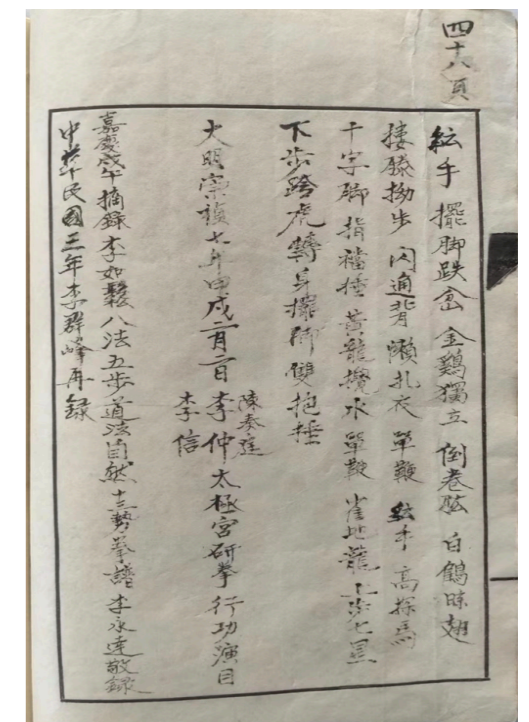 四十八頁
紜手 擺脚跌岔 金鷄獨立 倒卷肱 白鶴晾翅
摟膝拗步 闪通背 懶扎衣 單鞭 紜手 高探馬
十字脚 指襠捶 黃龍攪水 單鞭 雀地龍 上步七星
下步跨虎 轉身擺脚 雙抱捶
大明崇禎七年甲戌二月二日 陳奏庭 李仲 李信 太極宮研拳 行功演目
嘉慶戊午摘錄 李如鬆 八法五步 道法自然 十三勢拳譜 李永達敬錄
中華民國三年李群峰再錄